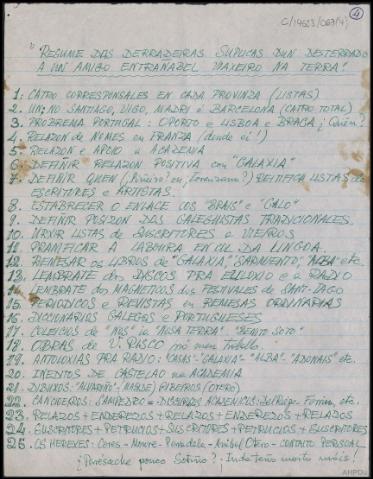 4
C/14653/003/4
"RESUME DAS DERRADEIRAS SUPLICAS DUN DESTERRADO
A UN AMIGO ENTRAÑABEL VIAXEIRO NA TERRA"
1: CATRO CORRESPONSALES EN CADA PROVINZA (LISTAS)
2: UN, NO SANTIAGO, VIGO, MADRI e BARCELONA (CATRO TOTAL)
3. PROBREMA PORTUGAL: OPORTO e LISBOA e BRAGA ¿Quén?
4. RELAZON de NOMES en FRANZA (dende ei!)
5. RELAZON e APOIO a ACADEMIA
6. DEFINIR RELAZON POSITIVA con "GALAXIA"
7. DEFINIR QUEN (¿Piñeiro? ou, ) REITIFICA LISTAS de
ESCRITORES e ARTISTAS.
8. ESTABRECER O ENLACE COS "BRAIS" e "GALO"
9. DEFINIR POSIZON DOS GALEGUISTAS TRADICIONALES
10. URXIR LISTAS de SUSCRITORES a VIEIROS
11. PRANIFICAR A LABOURA EN COL DA LINGOA.
12. REMESAR OS LIBROS de "GALAXIA", SARMIENTO", ALBA" etc.
13. LEMBRATE dos DISCOS PRA ELLOXIO e a RADIO
14. LEMBRATE dos MAGNETICOS dos FESTIVALES de SANT-IAGO
15. PERIODICOS e REVISTAS en REMESAS ORDINARIAS
16. DICCIONARIOS GALEGOS e PORTUGUESES
17. COLEICIOS de "NÓS" ia "NOSA TERRA". "BENITO SOTO"
18. OBRAS de V. RISCO pó meu Traballo.
19. ANTOLOXIAS PRA RADIO: "CASAS-"GALAXIA"-"ALBA". "ADONAIS" etc.
20. INEDITOS DE CASTELAO na ACADEMIA
21. DIBUXOS: "ALVARIÑO"- "MASIDE) RIBEIROS (OTERO)
22. CANCIONEROS: CAMPEDRO = DISCURSOS ACADEMICOS: etc.
23. RELAZOS + ENDEREZOS + RELAZOS + ENDEREZOS + RELAZOS
24. SUSCRITORES + PETRUCIOS + SUSCRITORES + PETRUCIOS + SUSCRITORES
25. OS HEREXES: Cores - Monre - Penadela - Anibal Otero - CONTATO PERSOAL
¿Parésache pouco Sotiño? ¡Inda teño moito mais!
AHPOu